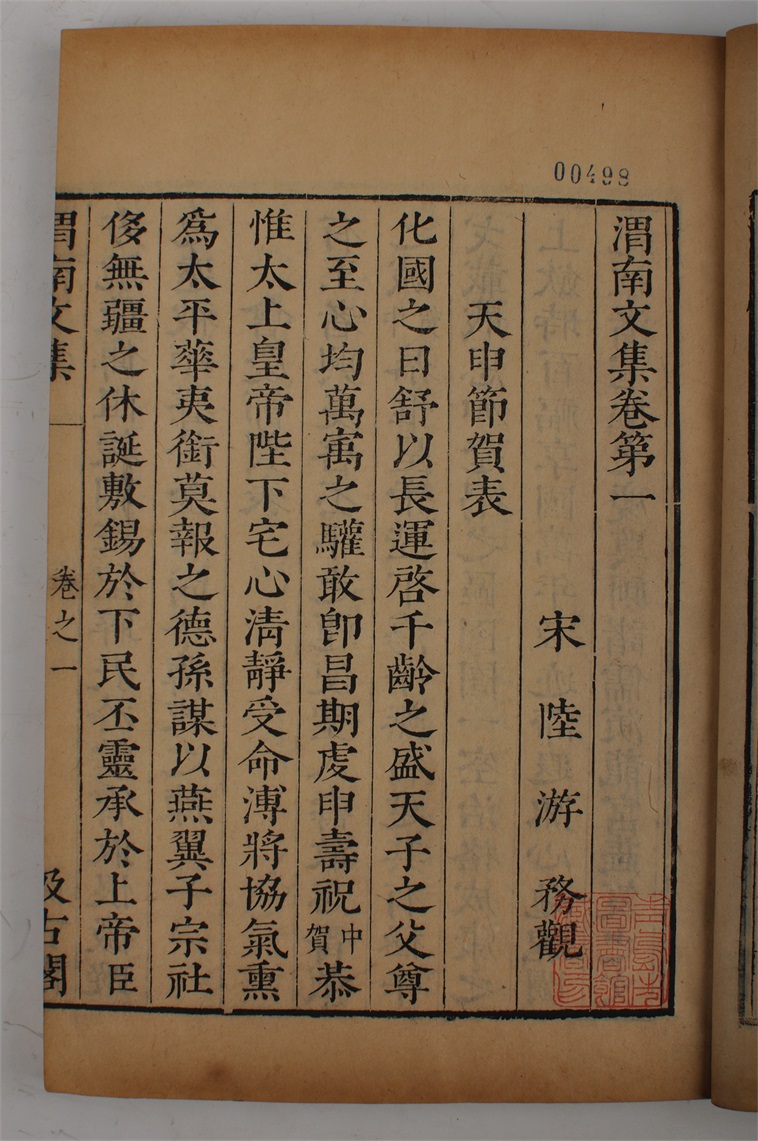 00498
渭南文集卷第一
宋陸游務觀
天申節賀表
化國之日舒以長運啓千齡之盛天子之父尊
之至心均萬㝢之驩敢卽昌期虔申壽祝中賀恭
惟太上皇帝陛下宅心淸靜受命溥將協氣熏
爲太平華夷銜莫報之德孫謀以燕翼子宗社
侈無疆之休誕敷錫於下民丕靈承於上帝臣
渭南文集
卷之一
汲古閣